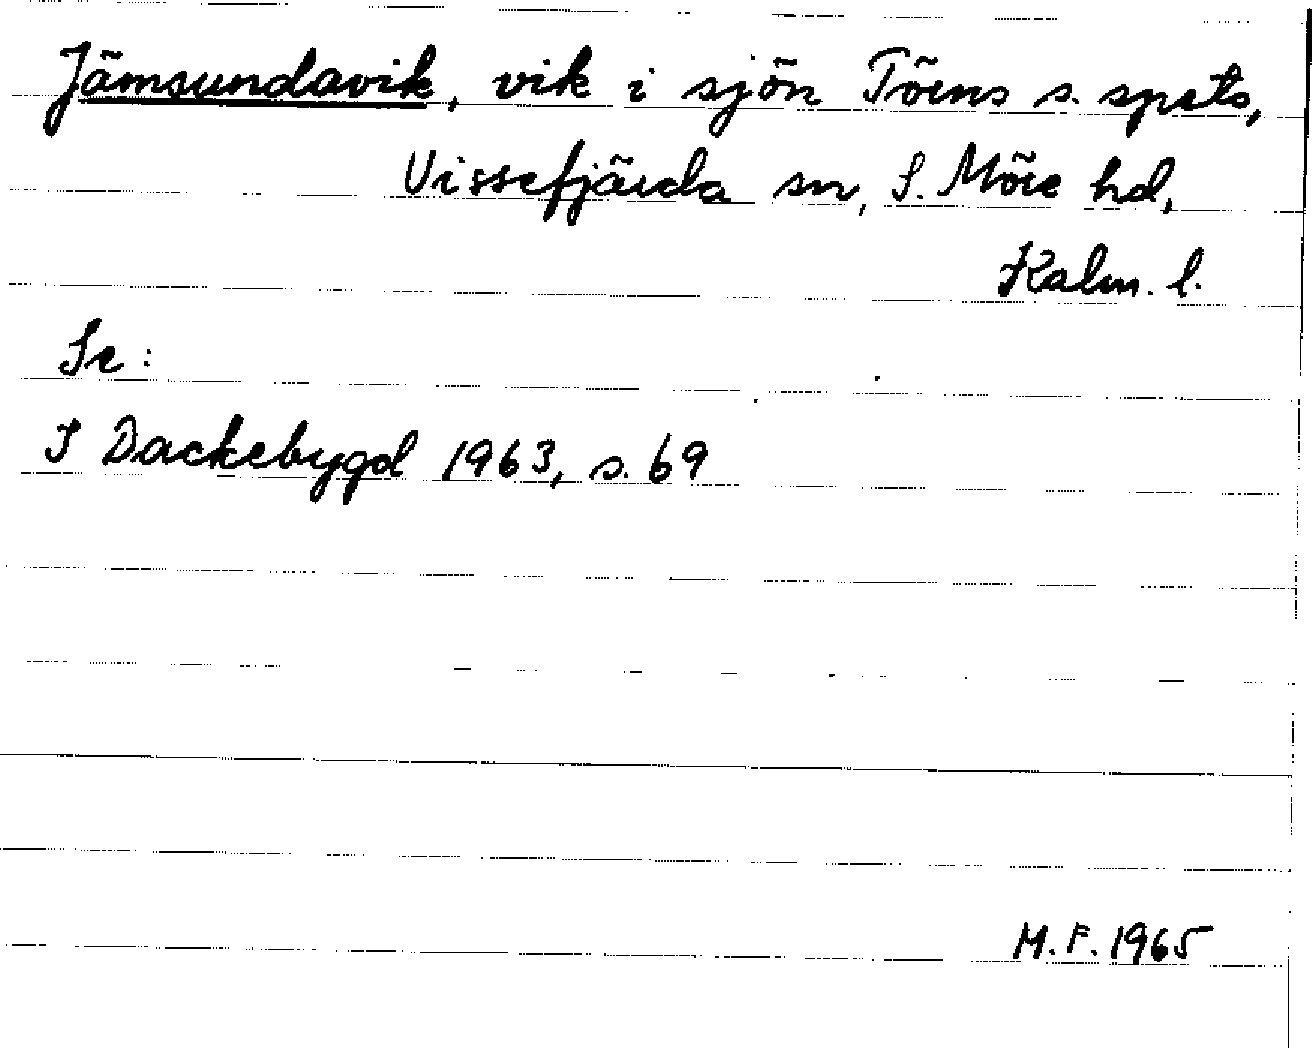 Jämsundavik, vik i sjön Törns s. spets,
Vissefjärda sn, S. Möre hd,
Kalm. l.
Se:
I Dackebygd 1963, s. 69
M. F. 1965